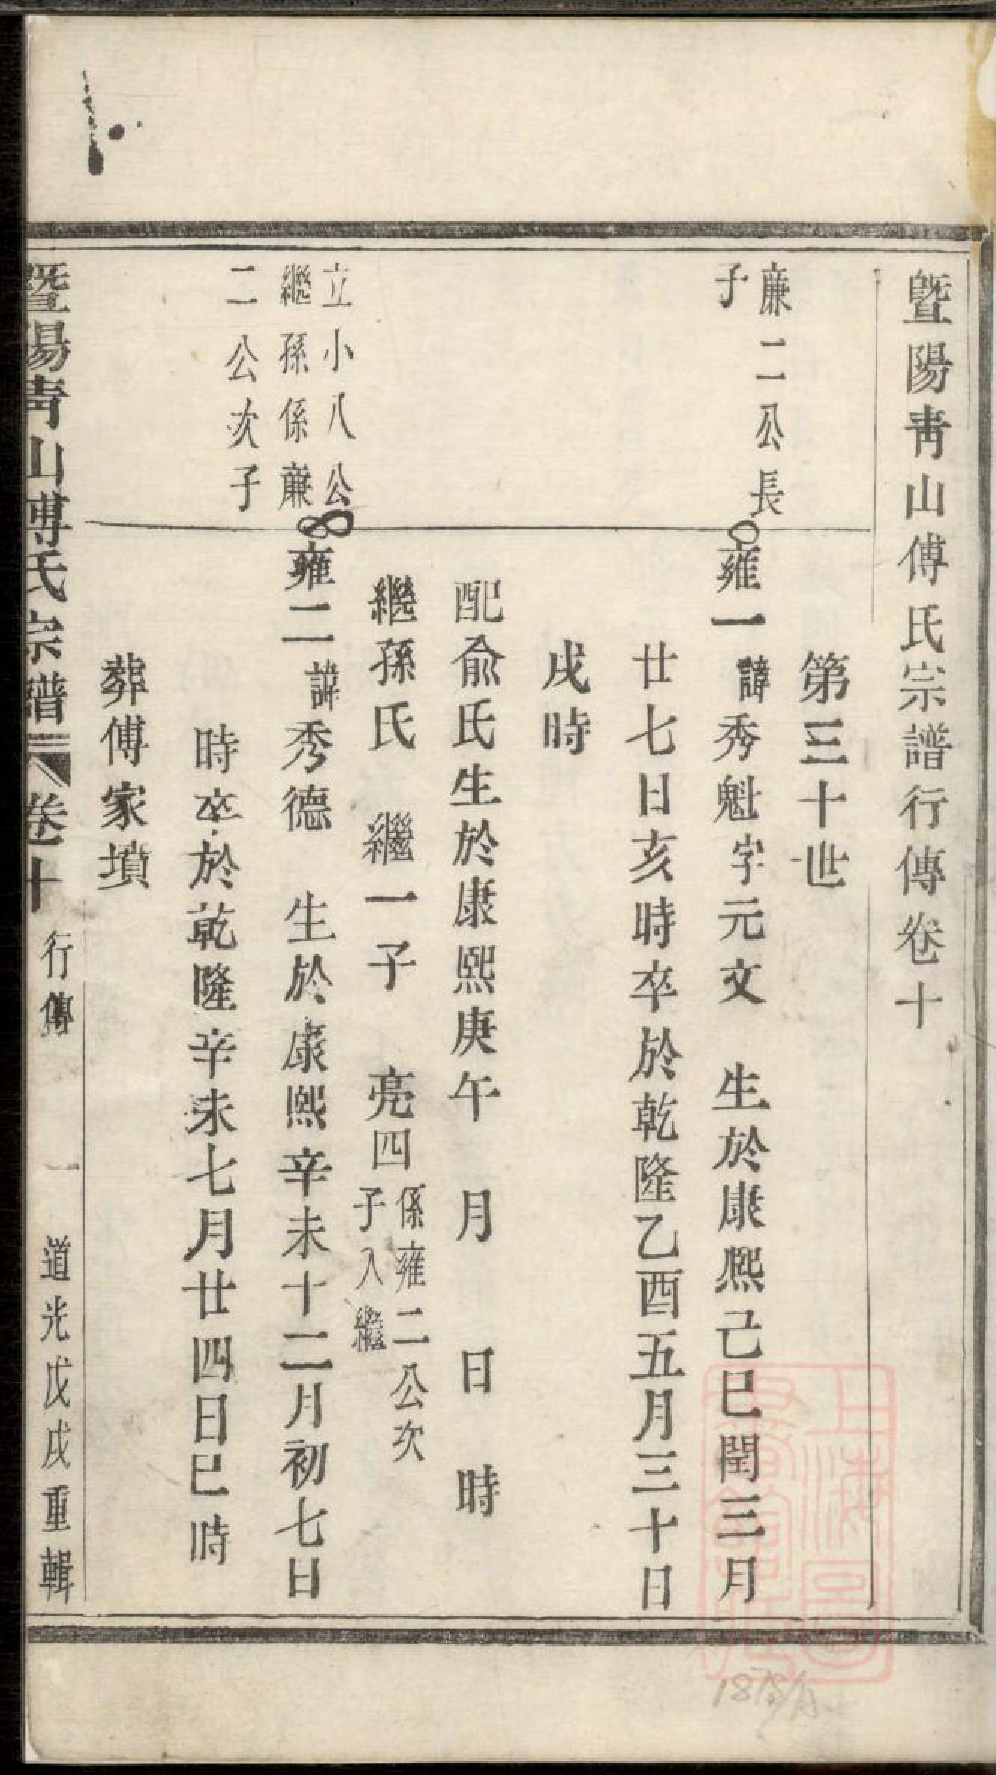 暨陽青山傅氏宗譜行傳卷十
第三十世
廉二公長
子
雍一諱秀魁字元文 生於康熙己巳閏三月
廿七日亥時卒於乾隆乙酉五月三十日
戌時
配俞氏生於康熙庚午 月 日 時
繼孫氏 繼一子 亮四係雍二公次
子入繼
立小八公
繼孫係蔴
二公次子
雍二諱秀德 生於康熙辛未十二月初七日
時卒於乾隆辛未七月廿四日巳時
葬傅家墳
暨陽青山傅氏宗譜 卷十 行傳 一 道光戊戌重輯
上海圖